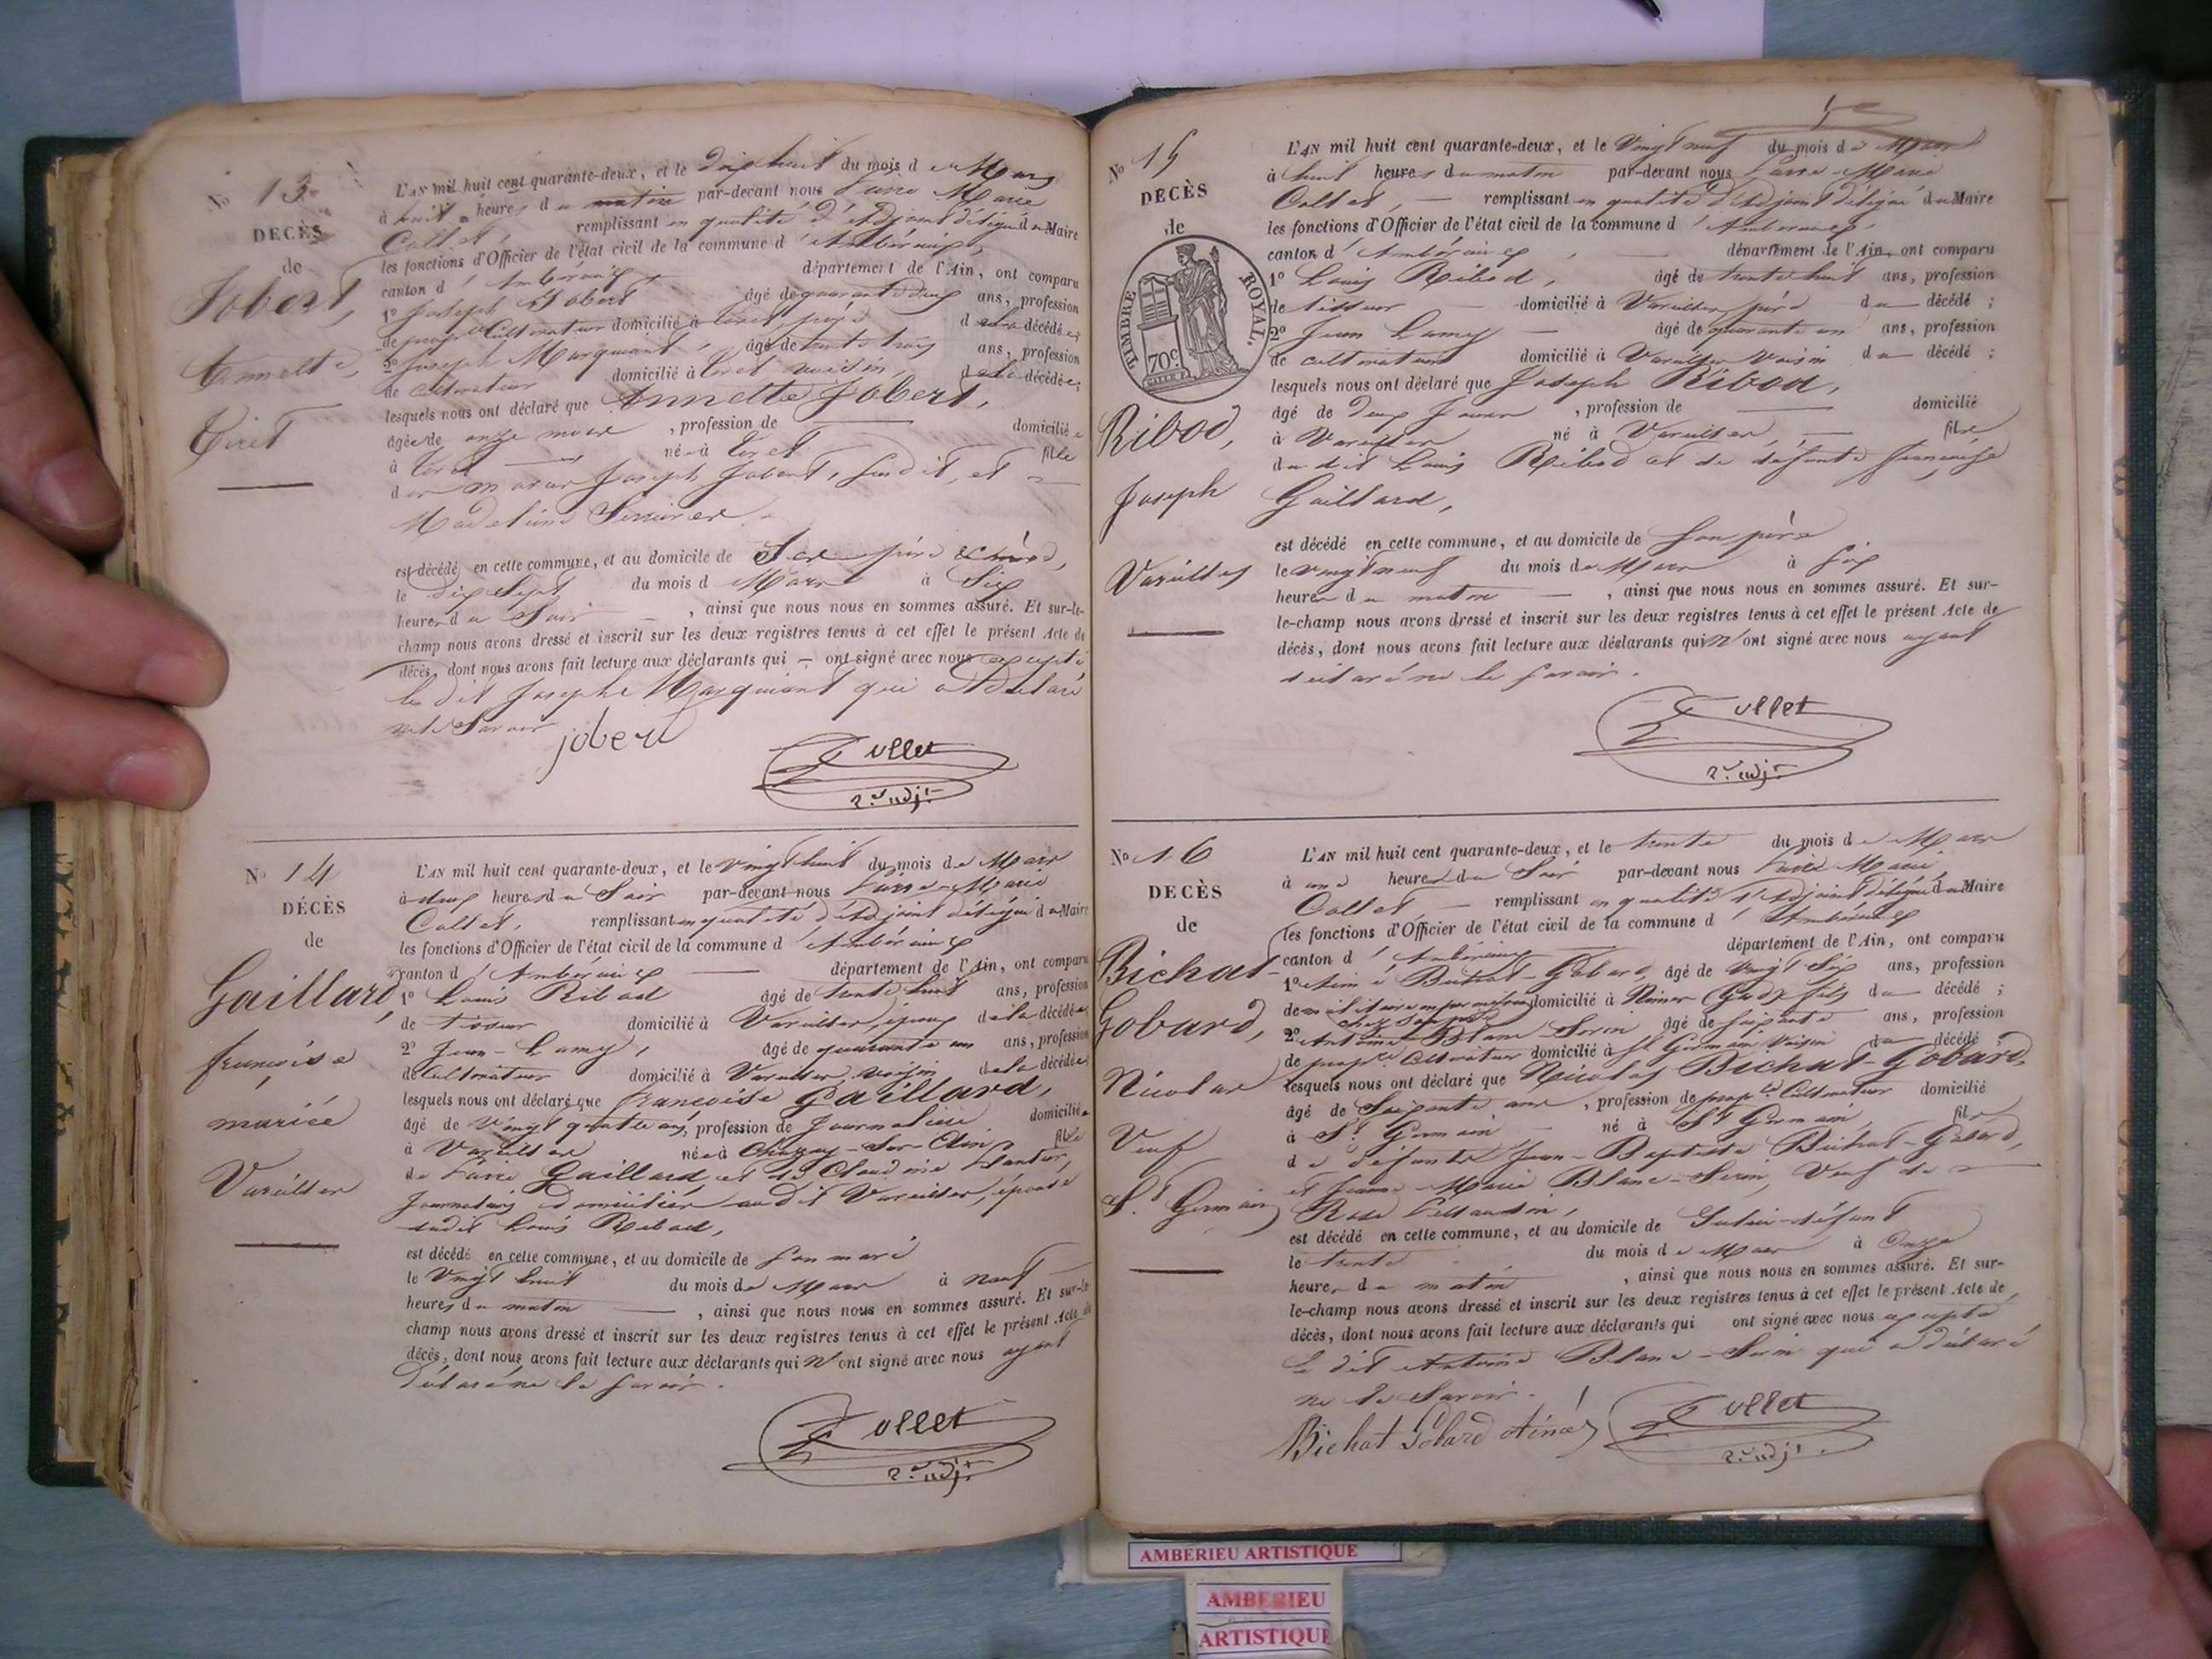 N° 13
DÉCÈS
de
Jobert,
Annette,
Tiret
L'AN mil huit cent quarante-deux, et le dix huit du mois de Mars
à huit heures du matin par-devant nous Marie
Collet, remplissant en qualité d'Adjoint délégué du Maire
les fonctions d'Officier de l'état civil de la commune d'Ambérieux,
canton d'Ambérieux, département de l'Ain, ont comparu
1° Joseph Jobert âgé de quarante deux ans, profession
de propre Cultivateur domicilié à Tiret, père de la décédée;
2° Joseph Marquiant, âgé de trente trois ans, profession
de cultivateur domicilié à Tiret voisin, de la décédée;
lesquels nous ont déclaré que Annette Jobert,
âgée de onze mois, profession de domiciliée
à Tiret née à Tiret fille
des mariés Joseph Jobert, susdit, et
Madeleine
est décédé en cette commune, et au domicile de Ses père & mère,
le dix Sept du mois de Mars à Six
heures du Soir, ainsi que nous nous en sommes assuré. Et sur-le-
champ nous avons dressé et inscrit sur les deux registres tenus à cet effet le présent Acte de
décès, dont nous avons fait lecture aux déclarants qui ont signé avec nous excepté
le dit Joseph Marquiant qui a déclaré
ne le Savoir
jobert
Collet
2e adjt
N° 14
DÉCÈS
de
Gaillard,
françoise
mariée
Vareilles
L'AN mil huit cent quarante-deux, et le vingt huit du mois de Mars
à deux heures du Soir par-devant nous Marie
Collet, remplissant en qualité d'Adjoint délégué du Maire
les fonctions d'Officier de l'état civil de la commune d'Ambérieux
canton d'Ambérieux département de l'Ain, ont comparu
1° Louis Ribod âgé de trente huit ans, profession
de tisseur domicilié à Vareilles, époux de la décédée;
2° Jean Lamy, âgé de quarante un ans, profession
de Cultivateur domicilié à Vareilles voisin de la décédée;
lesquels nous ont déclaré que françoise Gaillard,
âgé de Vingt quatre ans, profession de Journalière domiciliée
à Vareilles née à Chazey-Sur-Ain fille
de Gaillard et de Claudine
Journaliers domiciliés audit Vareilles, épouse
dudit Louis Ribod,
est décédé en cette commune, et au domicile de Son mari
le Vingt huit du mois de Mars à neuf
heures du matin, ainsi que nous nous en sommes assuré. Et sur-le-
champ nous avons dressé et inscrit sur les deux registres tenus à cet effet le présent Acte de
décès, dont nous avons fait lecture aux déclarants qui N'ont signé avec nous ayant
déclaré ne le Savoir.
Collet
2e adjt
N° 15
DÉCÈS
de
TIMBRE ROYAL
70c
Ribod,
Joseph
Vareilles
L'AN mil huit cent quarante-deux, et le Vingt neuf du mois de Mars
à huit heures du matin par-devant nous Marie
Collet, remplissant en qualité d'Adjoint délégué du Maire
les fonctions d'Officier de l'état civil de la commune d'Ambérieux,
canton d'Ambérieux, département de l'Ain, ont comparu
1° Louis Ribod, âgé de trente huit ans, profession
de tisseur domicilié à Vareilles père du décédé;
2° Jean Lamy âgé de quarante un ans, profession
de cultivateur domicilié à Vareilles Voisin du décédé;
lesquels nous ont déclaré que Joseph Ribod,
âgé de deux Jours, profession de domicilié
à Vareilles né à Vareilles, fils
du dit Louis Ribod et de défunte françoise
Gaillard,
est décédé en cette commune, et au domicile de Son père
le vingt neuf du mois de Mars à Six
heures du matin, ainsi que nous nous en sommes assuré. Et sur-
le-champ nous avons dressé et inscrit sur les deux registres tenus à cet effet le présent Acte de
décès, dont nous avons fait lecture aux déclarants qui N'ont signé avec nous ayant
déclaré ne le Savoir.
Collet
2e adjt
N° 16
DÉCÈS
de
Bichat-
Gobard,
Nicolas
Veuf
St. Germain
L'AN mil huit cent quarante-deux, et le trente du mois de Mars
à une heures du Soir par-devant nous Marie
Collet remplissant en qualité d'Adjoint délégué du Maire
les fonctions d'Officier de l'état civil de la commune d'Ambérieux
canton d'Ambérieux département de l'Ain, ont comparu
1° Aimé Bichat-Gobard, âgé de Vingt Six ans, profession
de militaire domicilié à Nimes (Gard) fils du décédé;
chez son père
2° Antoine Blanc Serin âgé de Soixante ans, profession
de propre Cultivateur domicilié à St Germain Voisin du décédé;
lesquels nous ont déclaré que Nicolas Bichat-Gobard,
âgé de Soixante ans, profession de propre Cultivateur domicilié
à St. Germain né à St Germain, fils
de défunts Jean-Baptiste Bichat-Gobard,
et Jeanne-Marie Blanc-Serin, Veuf de
Rose
est décédé en cette commune, et au domicile de
le trente du mois de Mars à Onze
heures du matin, ainsi que nous nous en sommes assuré. Et sur-
le-champ nous avons dressé et inscrit sur les deux registres tenus à cet effet le présent Acte de
décès, dont nous avons fait lecture aux déclarants qui ont signé avec nous excepté
le dit Antoine Blanc-Serin qui a déclaré
ne le Savoir.
Bichat Gobard Aimé
Collet
2e adjt
AMBERIEU ARTISTIQUE
AMBERIEU
ARTISTIQUE